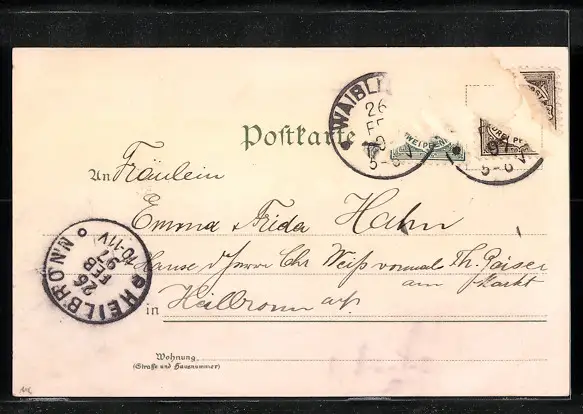 WAIBLI
26
FE
5-6 V
WEI PFENN
97
5-6 V
Postkarte
An Fräulein
Emma Frida Hahn
Hause d/Herrn Chr Weiß vormals Th. Kaiser
am Markt
in Heilbronn a/N.
HEILBRONN
26
FEB
97
10-11V
Wohnung
(Straße und Hausnummer)